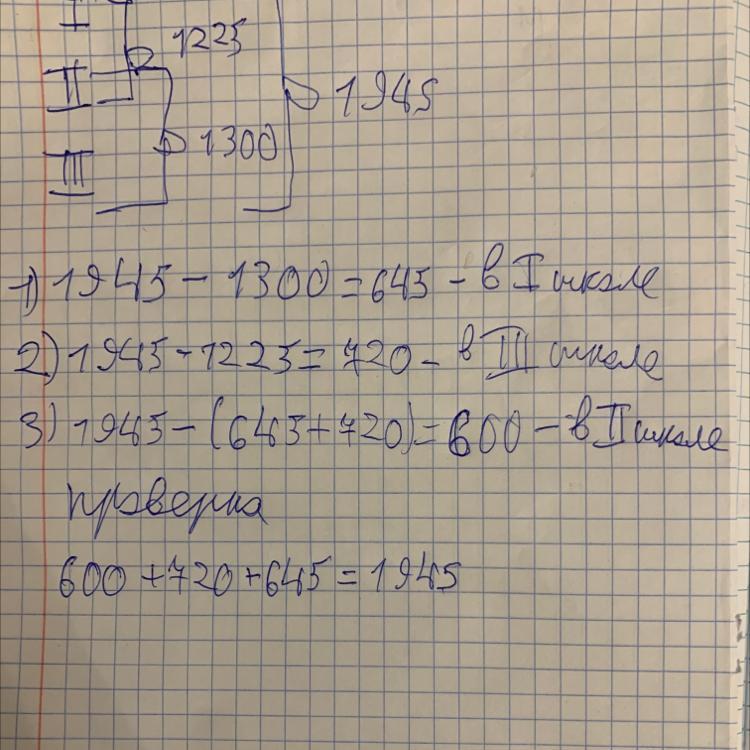 I
1225
II
1945
1300
III
1) 1945 - 1300 = 645 - в I школе
2) 1945 - 1225 = 720 - в III школе
3) 1945 - (645 + 720) = 600 - в II школе
проверка
600 + 720 + 645 = 1945